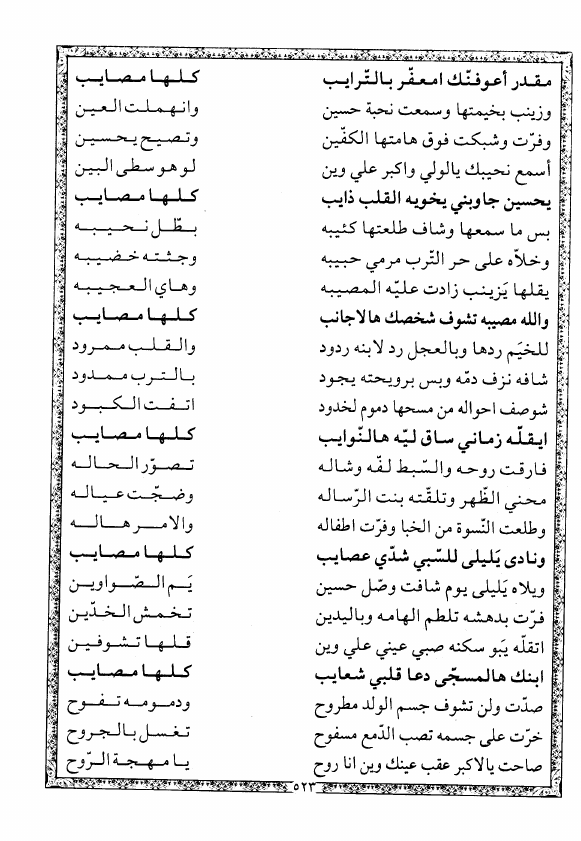 مقدر أعوفنّك امعفّر بالتّرايب كلها مصايب
وزينب بخيمتها وسمعت نحبة حسين وانهملت العين
وفرّت وشبكت فوق هامتها الكفّين وتصيح يحسين
أسمع نحيبك يالولي واكبر علي وين لو هو سطى البين
يحسين جاوبني يخويه القلب ذايب كلها مصايب
بس ما سمعها وشاف طلعتها كئيبه بطّل نحيبه
وخلاّه على حر التّرب مرمي حبيبه وجثته خضيبه
يقلها يَزينب زادت عليّه المصيبه وهاي العجيبه
والله مصيبه تشوف شخصك هالاجانب كلها مصايب
للخيَم ردها وبالعجل رد لابنه ردود والقلب ممرود
شافه نزف دمّه وبس برويحته يجود بالترب ممدود
شوصف احواله من مسحها دموم لخدود اتفت الكبود
ايقلّه زماني ساق ليّه هالنّوايب كلها مصايب
فارقت روحه والسّبط لفّه وشاله تصوّر الحاله
محني الظّهر وتلقّته بنت الرّساله وضجّت عياله
وطلعت النّسوة من الخبا وفرّت اطفاله والامر هاله
ونادى يَليلى للسّبي شدّي عصايب كلها مصايب
ويلاه يَليلى يوم شافت وصّل حسين يَم الصّواوين
فرّت بدهشه تلطم الهامه وباليدين تخمش الخدّين
اتقلّه يَبو سكنه صبي عيني علي وين قلها تشوفين
ابنك هالمسجّى دعا قلبي شعايب كلها مصايب
صدّت ولن تشوف جسم الولد مطروح ودمومه تفوح
خرّت على جسمه تصب الدّمع مسفوح تغسل بالجروح
صاحت يالاكبر عقب عينك وين انا روح يا مهجة الرّوح
٥٢٣